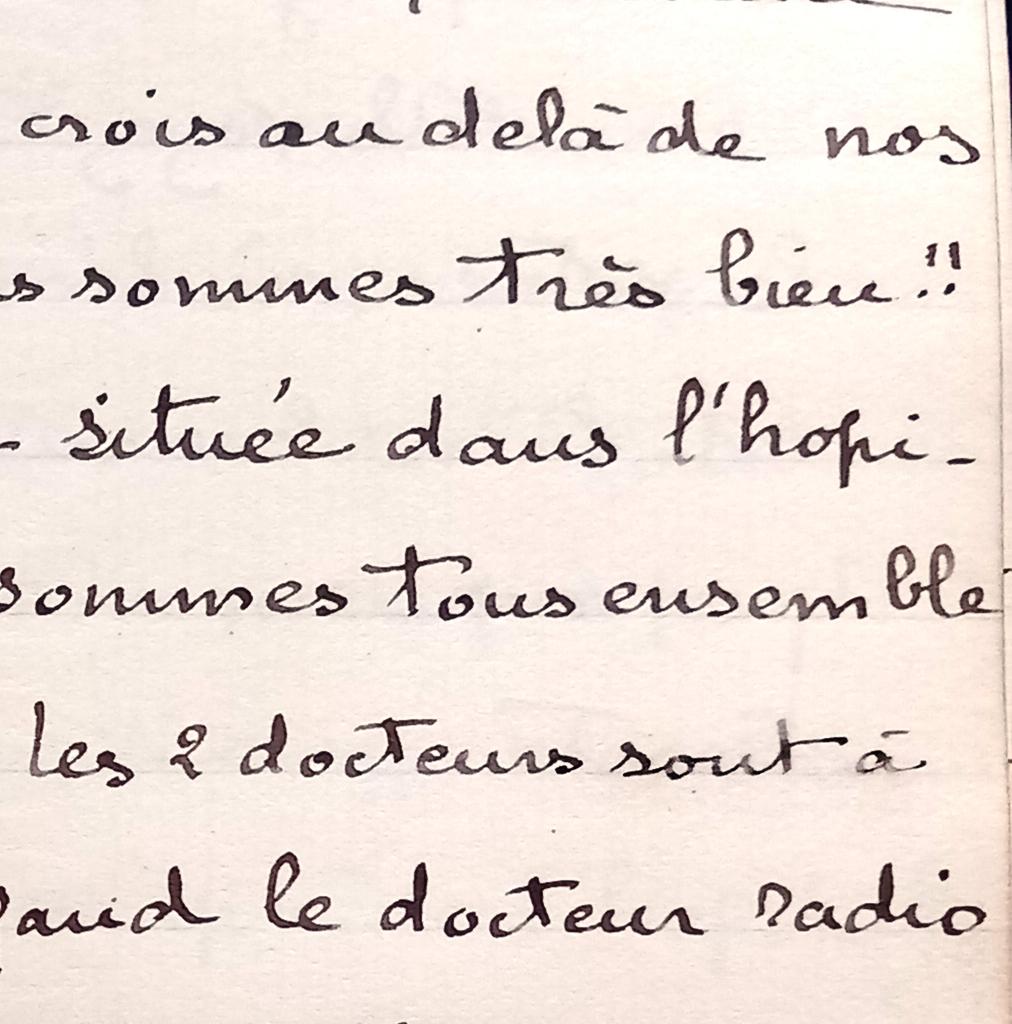 crois au delà de nos
s sommes très bien!!
- située dans l'hopi-
sommes tous ensemble
les 2 docteurs sont à
and le docteur radio